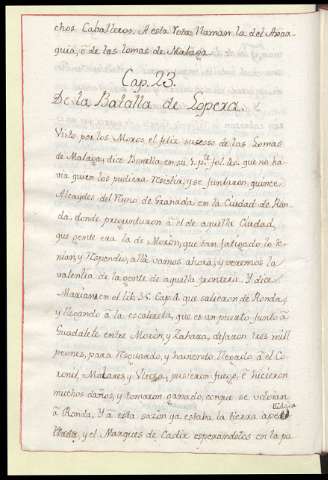 chos Caballeros. A esta Rota llaman la del Axar-
quia, ò de las Lomas de Malaga.
Cap. 23.
De la Batalla de Lopera.
Visto por los Moros el feliz sucesso de las Lomas
de Malaga, dice Bonilla en su
via quien los pudiera Resistir, y se juntaron quince
Alcaydes del Reyno de Granada en la Ciudad de Ron-
da, donde preguntaron à el de aquella Ciudad,
que gente era la de Morón, que tan fatigado lo te-
nian, y Respondio, allà vamos ahora, y veremos la
valentia de la gente de aquella frontera. Y dice
Mariana en el lib. Cap. que salieron de Ronda,
y llegando à la escalereta, que es un puerto junto à
Guadalete entre Morón, y Zahara, dejaron tres mil
peones, para Resguardo, y haviendo llegado à el Co-
ronil, Molares y Utrera, pusieron fuego, è hicieron
muchos daños, y tomaron ganado, conque se volvian
à Ronda. Y à esta sazon ya estaba la tierra
y el Marques de Cadiz esperandolos en la pa